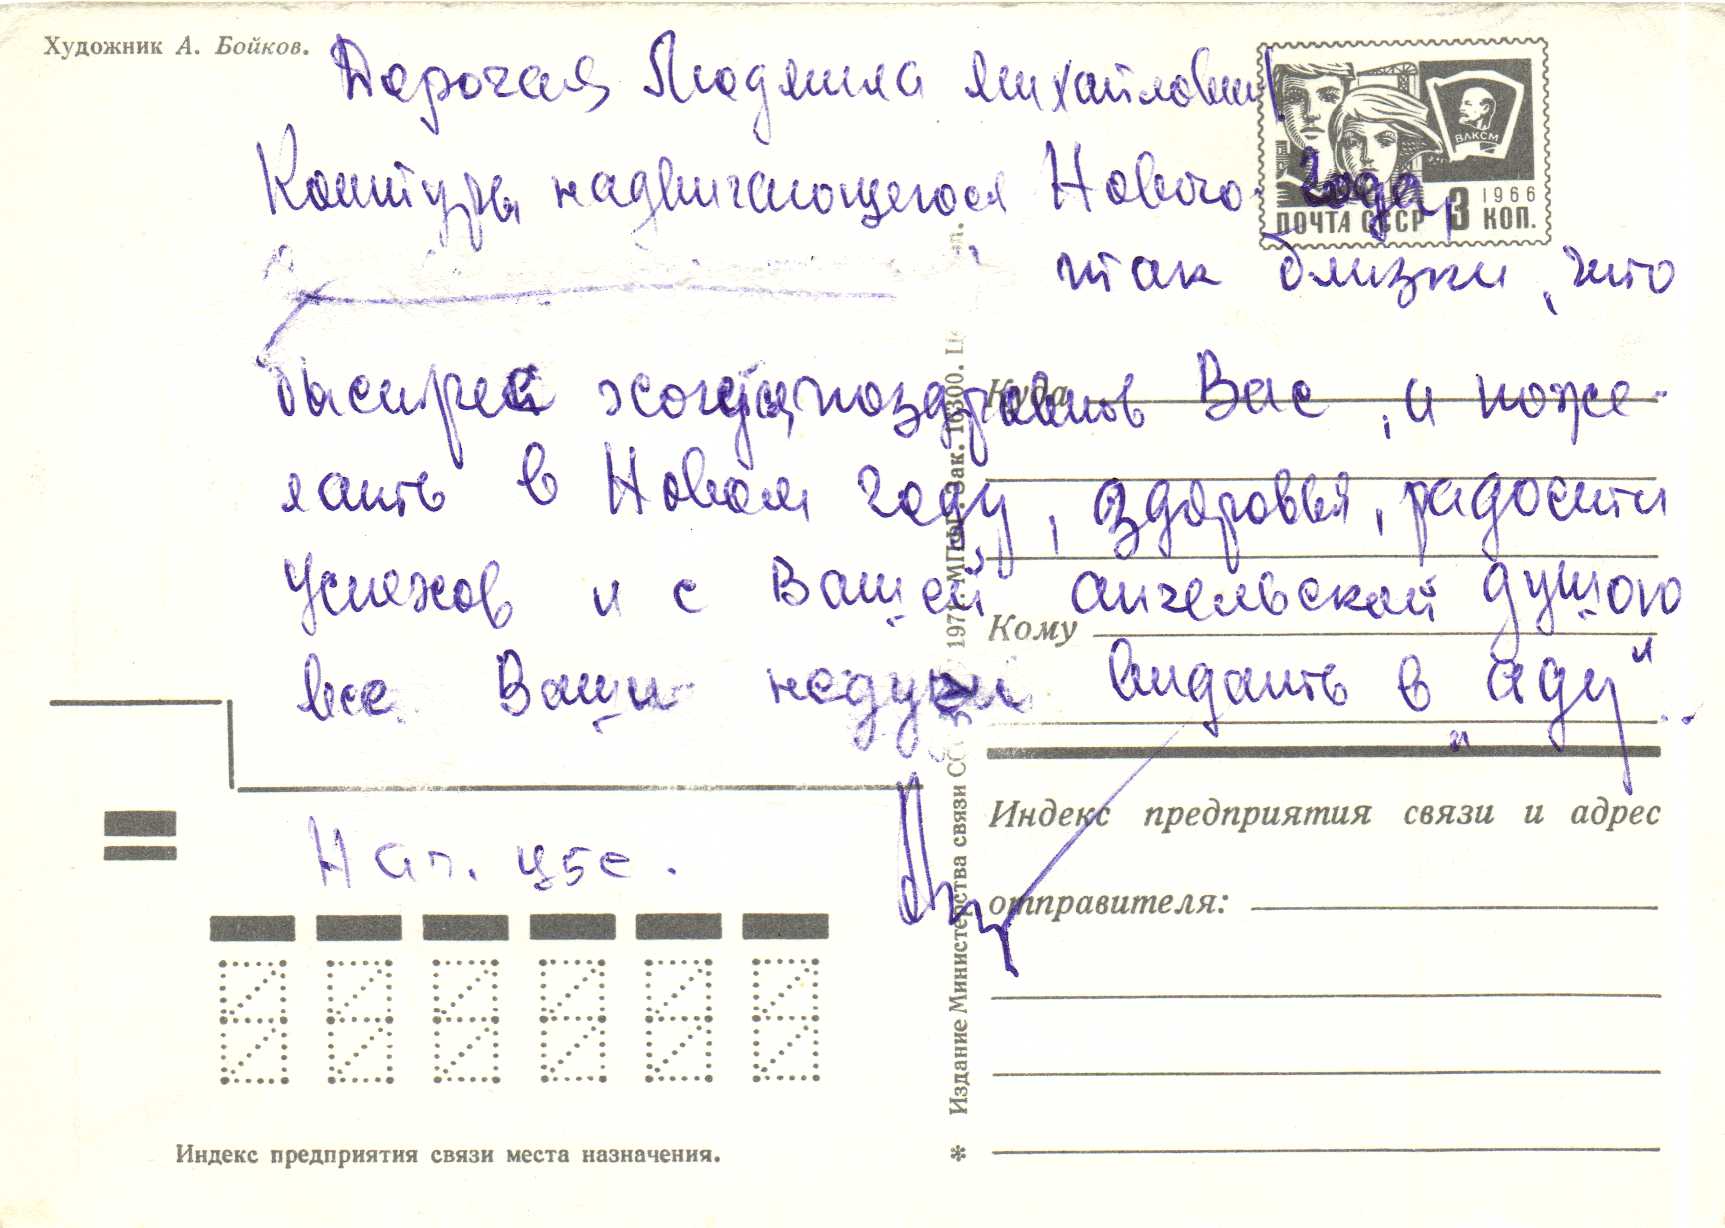 Художник А. Бойков.
Дорогая Людмила Михайловна
Контуры надвигающегося Нового года,
так близки, что
быстрей хочется поздравить Вас, и поже-
лать в Новом году, здоровья, радости
успехов и с Вашей ангельской душою
все Ваши недуги видать в „аду“..
Нач. цве.
ВЛКСМ
1966
ПОЧТА СССР 3 КОП.
Куда
Кому
Индекс предприятия связи и адрес
отправителя:
Индекс предприятия связи места назначения.
* Издание Министерства связи